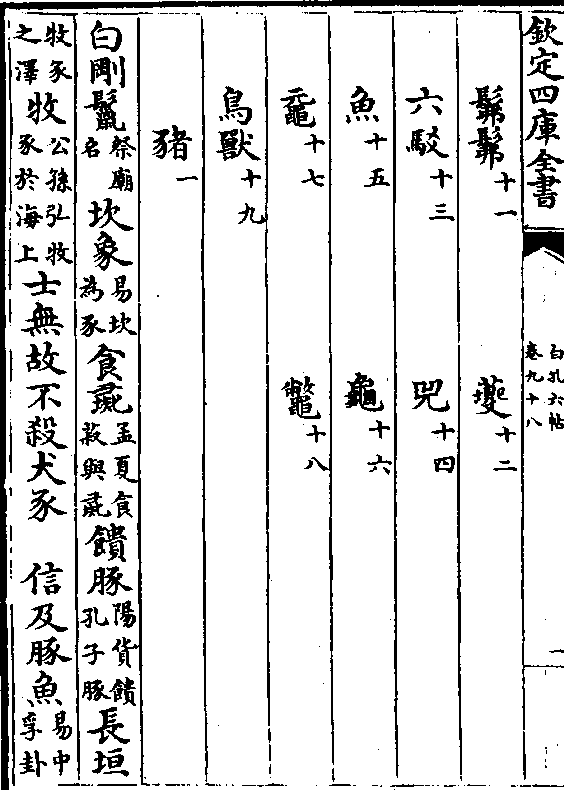 欽定四庫全書
白孔六帖
卷九十八
一
髴髴十一　䕫十二
六駁十三　兕十四
魚十五　龜十六
黿十七　鼈十八
鳥獸十九
豬一
白剛鬛祭廟名坎象易坎為豕食彘孟夏食菽與彘饋豚陽貨饋孔子豚長垣
牧豕之澤牧公孫弘牧豕於海上士無故不殺犬豕　信及豚魚易中孚卦